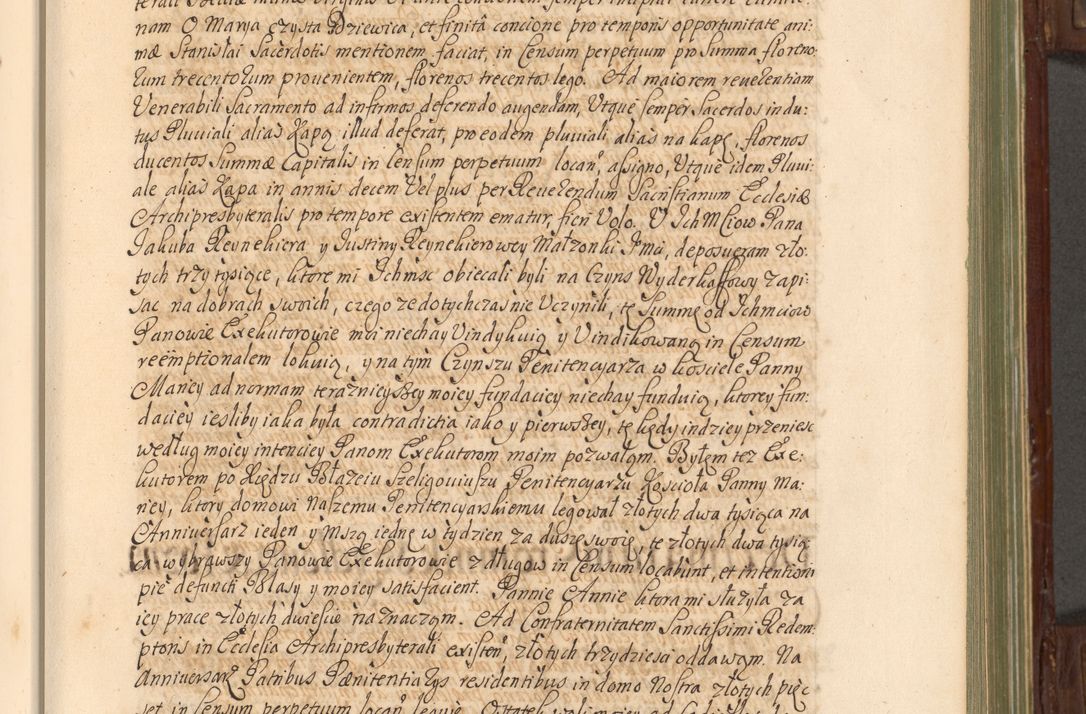 nam O Marya czysta Dziewica, et finitâ concione pro temporis opportunitate ani-
mæ Stanislai Sacerdotis mentionem faciat, in Censum perpetuum pro Summa floreno-
rum trecentorum provenientem, florenos trecentos lego. Ad maiorem reverentiam
Venerabili Sacramento ad infirmos deferendo augendam, Utque semper Sacerdos indu-
tus Pluviali alias Kapą illud deferat, pro eodem pluviali alias na kapę, florenos
ducentos Summæ Capitalis in Censum perpetuum locan', assigno, Utque idem Pluvi-
ale alias Kapa in annis decem Vel plus per Reverendum Sacristianum Ecclesiæ
Archipresbyteralis pro tempore existentem ematur, fieri Volo. U Ich Mciow Pana
Jakuba Reynekiera y Justiny Reynekierowey Małzonki Jmci, deposueram zło-
tych trzy tysiące, ktore mi Ichmsc obiecali byli na Czyns Wyderkaffowy zapi-
sac na dobrach swoich, czego ze dotychczas nie Uczynili, tę Summę od Ichmciow
Panowie Exekutorowie moi niechay Vindykuią y Vindikowaną in Censum
reemptionalem lokuią, y na tym Czynszu Penitencyarza w kosciele Panny
Maryey ad normam teraznieyszey moiey fundaciey niechay funduią, ktorey fun-
daciey iesliby iaka była contradictia iako y pierwszey, tę kędy indziey przeniesc
według moiey intenciey Panom Exekutorom moim pozwaląm. Byłem tez Exe-
kutorem po Xiędzu Błazeiu Szeligoviuszu Penitencyarzu Koscioła Panny Ma-
ryey, ktory domowi naszemu Penitencyarskiemu legował złotych dwa tysiąca na
Anniversarz ieden y Mszą iednę w tydzien za duszę swoię, te złotych dwa tysią-
ca wybrawszy Panowie Exekutorowie z długow in Censum locabunt, et intentioni
piæ defuncti Blasy y moiey satisfacient. Pannie Annie ktora mi słuzyła za
iey pracę złotych dwiescie naznacząm. Ad Confraternitatem Sanctissimi Redem-
ptoris in Ecclesia Archipresbyterali existen', złotych trzydziesci oddawąm. Na
Anniversarz Patribus Pænitentiarys residentibus in domo Nostra złotych pięc
set in Censum perpetuum locan' leguię.